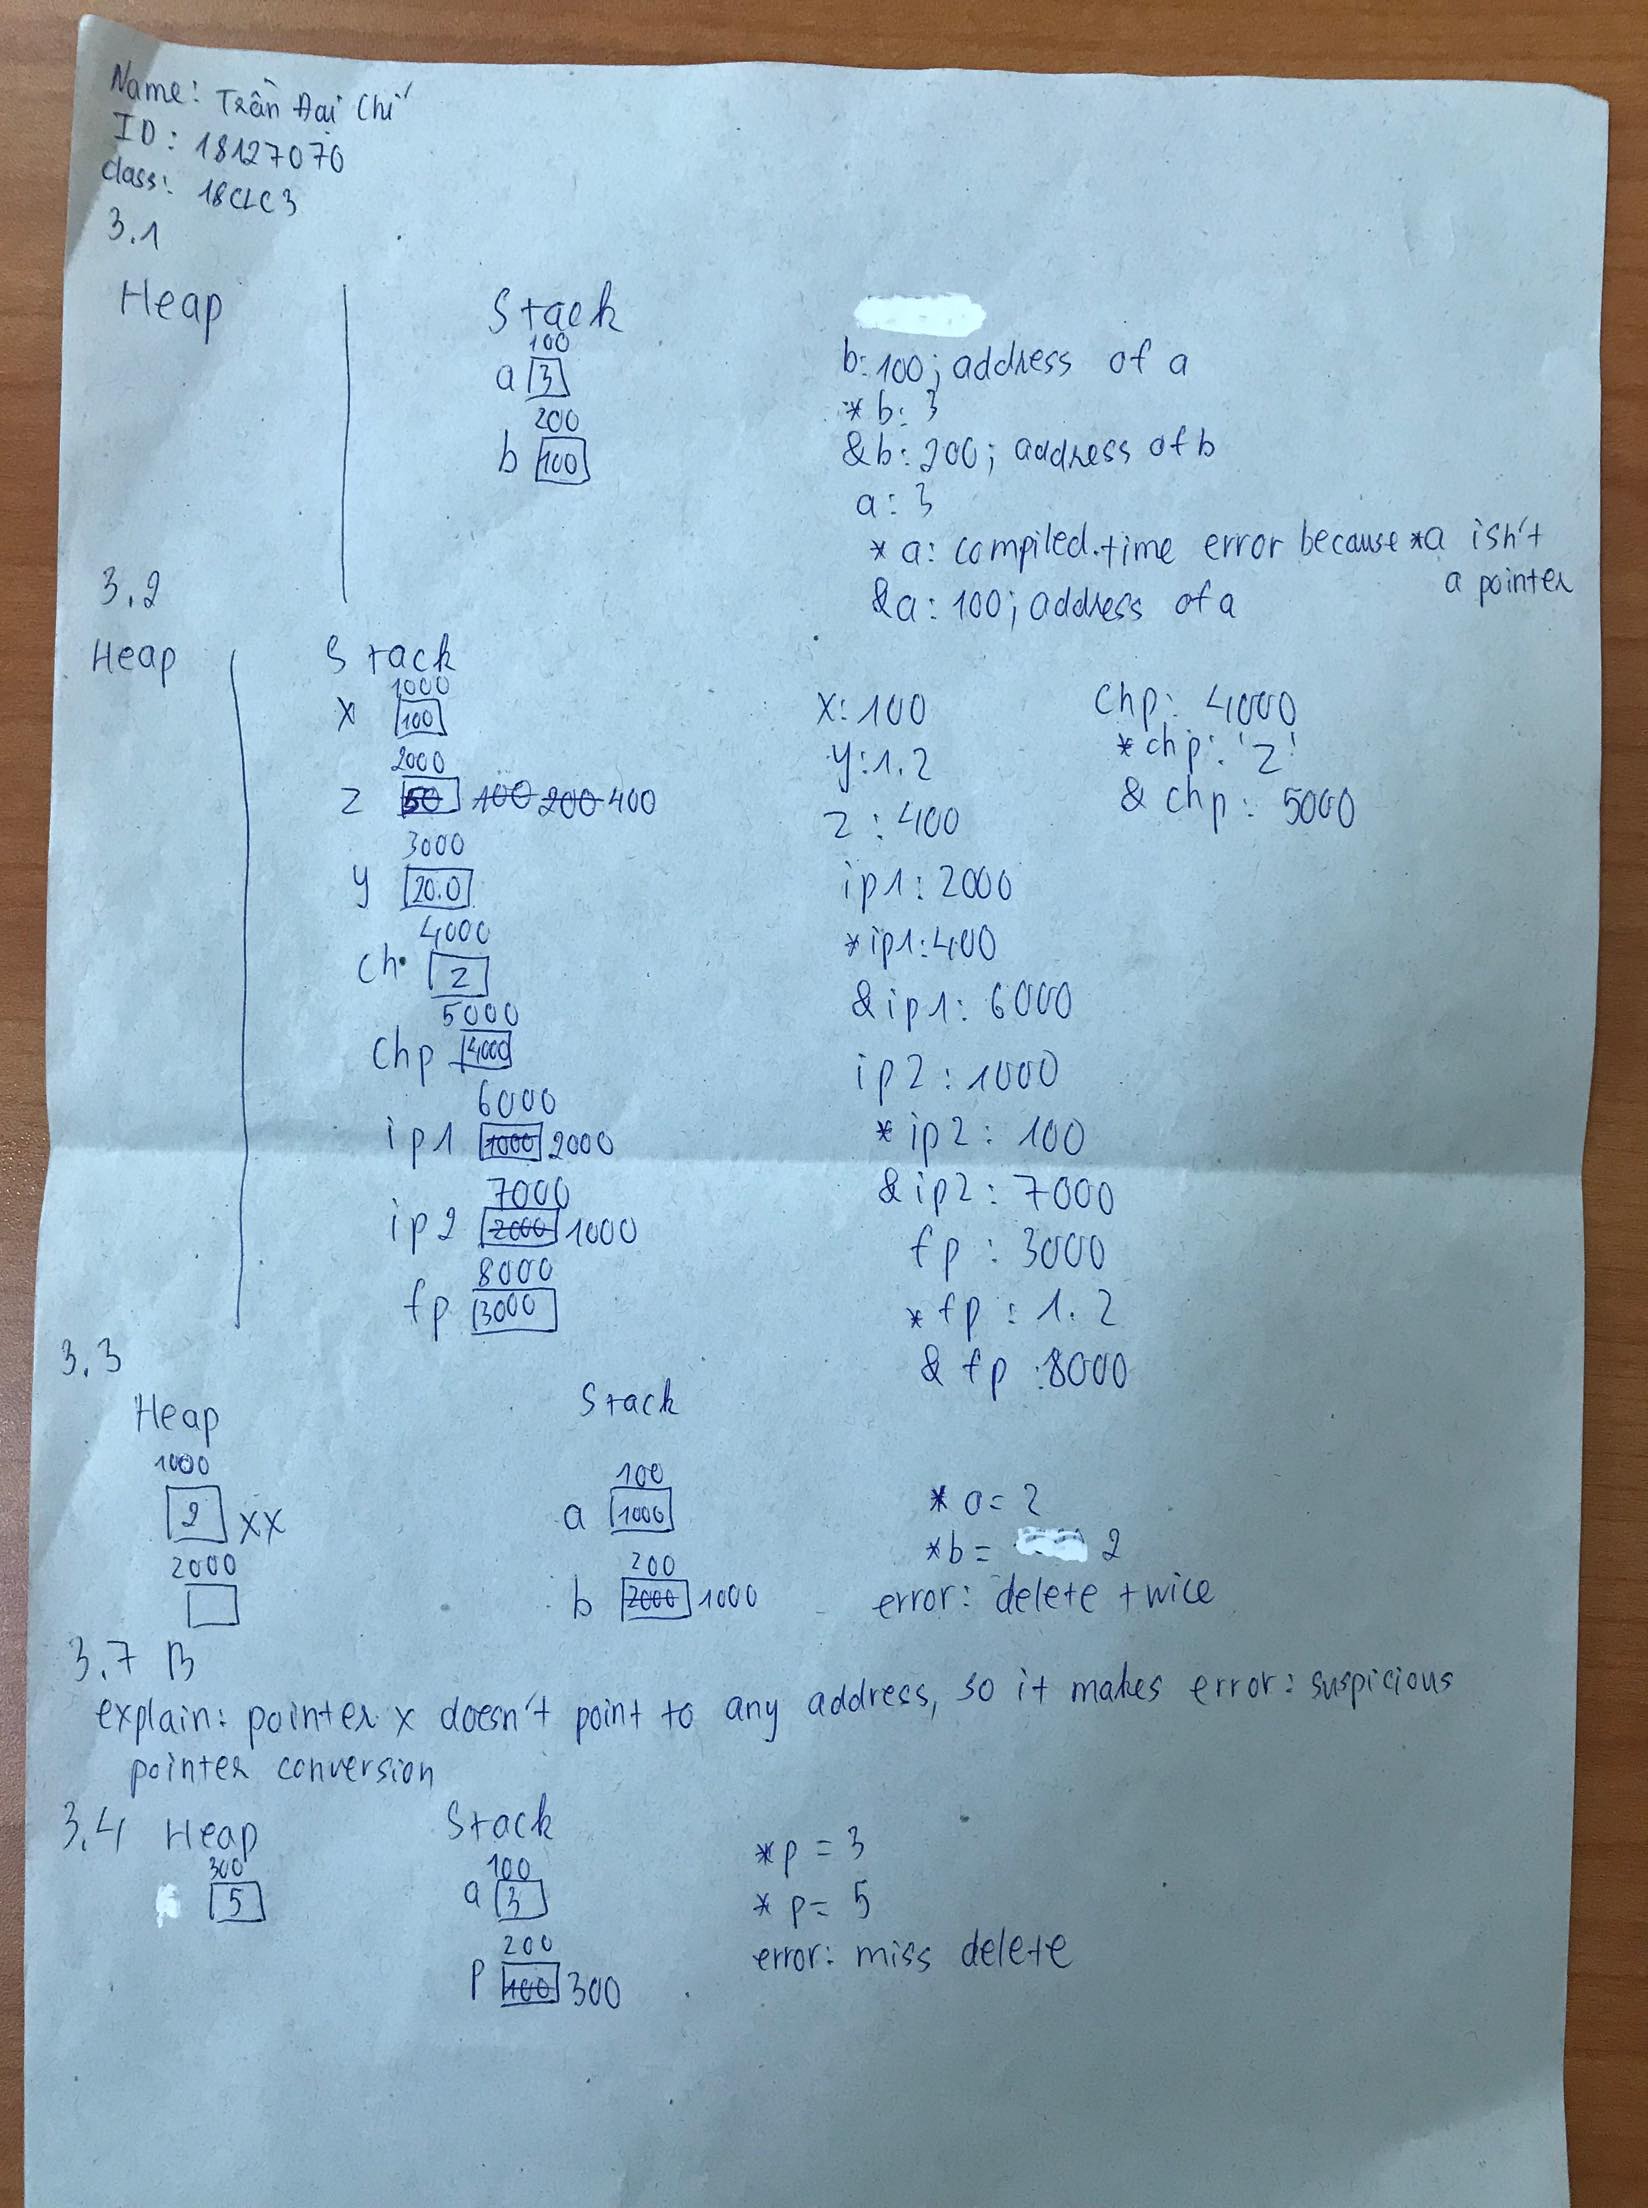 Name: Trần Đại Chí
ID: 18127070
class: 18CLC3
3.1
Heap
Stack
100
a 3
200
b 100
b: 100; address of a
*b: 3
&b: 200; address of b
a: 3
*a: compiled.time error because *a isn't
a pointer
&a: 100; address of a
3.2
Heap
Stack
1000
x 100
2000
z 50 100 200 400
3000
y 20.0
4000
ch z
5000
chp 4000
6000
ip1 1000 2000
7000
ip2 2000 1000
8000
fp 3000
x: 100
y: 1.2
z: 400
ip1: 2000
*ip1: 400
&ip1: 6000
ip2: 1000
*ip2: 100
&ip2: 7000
fp: 3000
*fp: 1.2
&fp: 8000
chp: 4000
*chp: 'z'
&chp: 5000
3.3
Heap
1000
2 XX
2000
Stack
100
a 1000
200
b 2000 1000
*a = 2
*b = 2
error: delete twice
3.7 B
explain: pointer x doesn't point to any address, so it makes error: suspicious
pointer conversion
3.4 Heap
300
5
Stack
100
a 3
200
p 100 300
*p = 3
*p = 5
error: miss delete